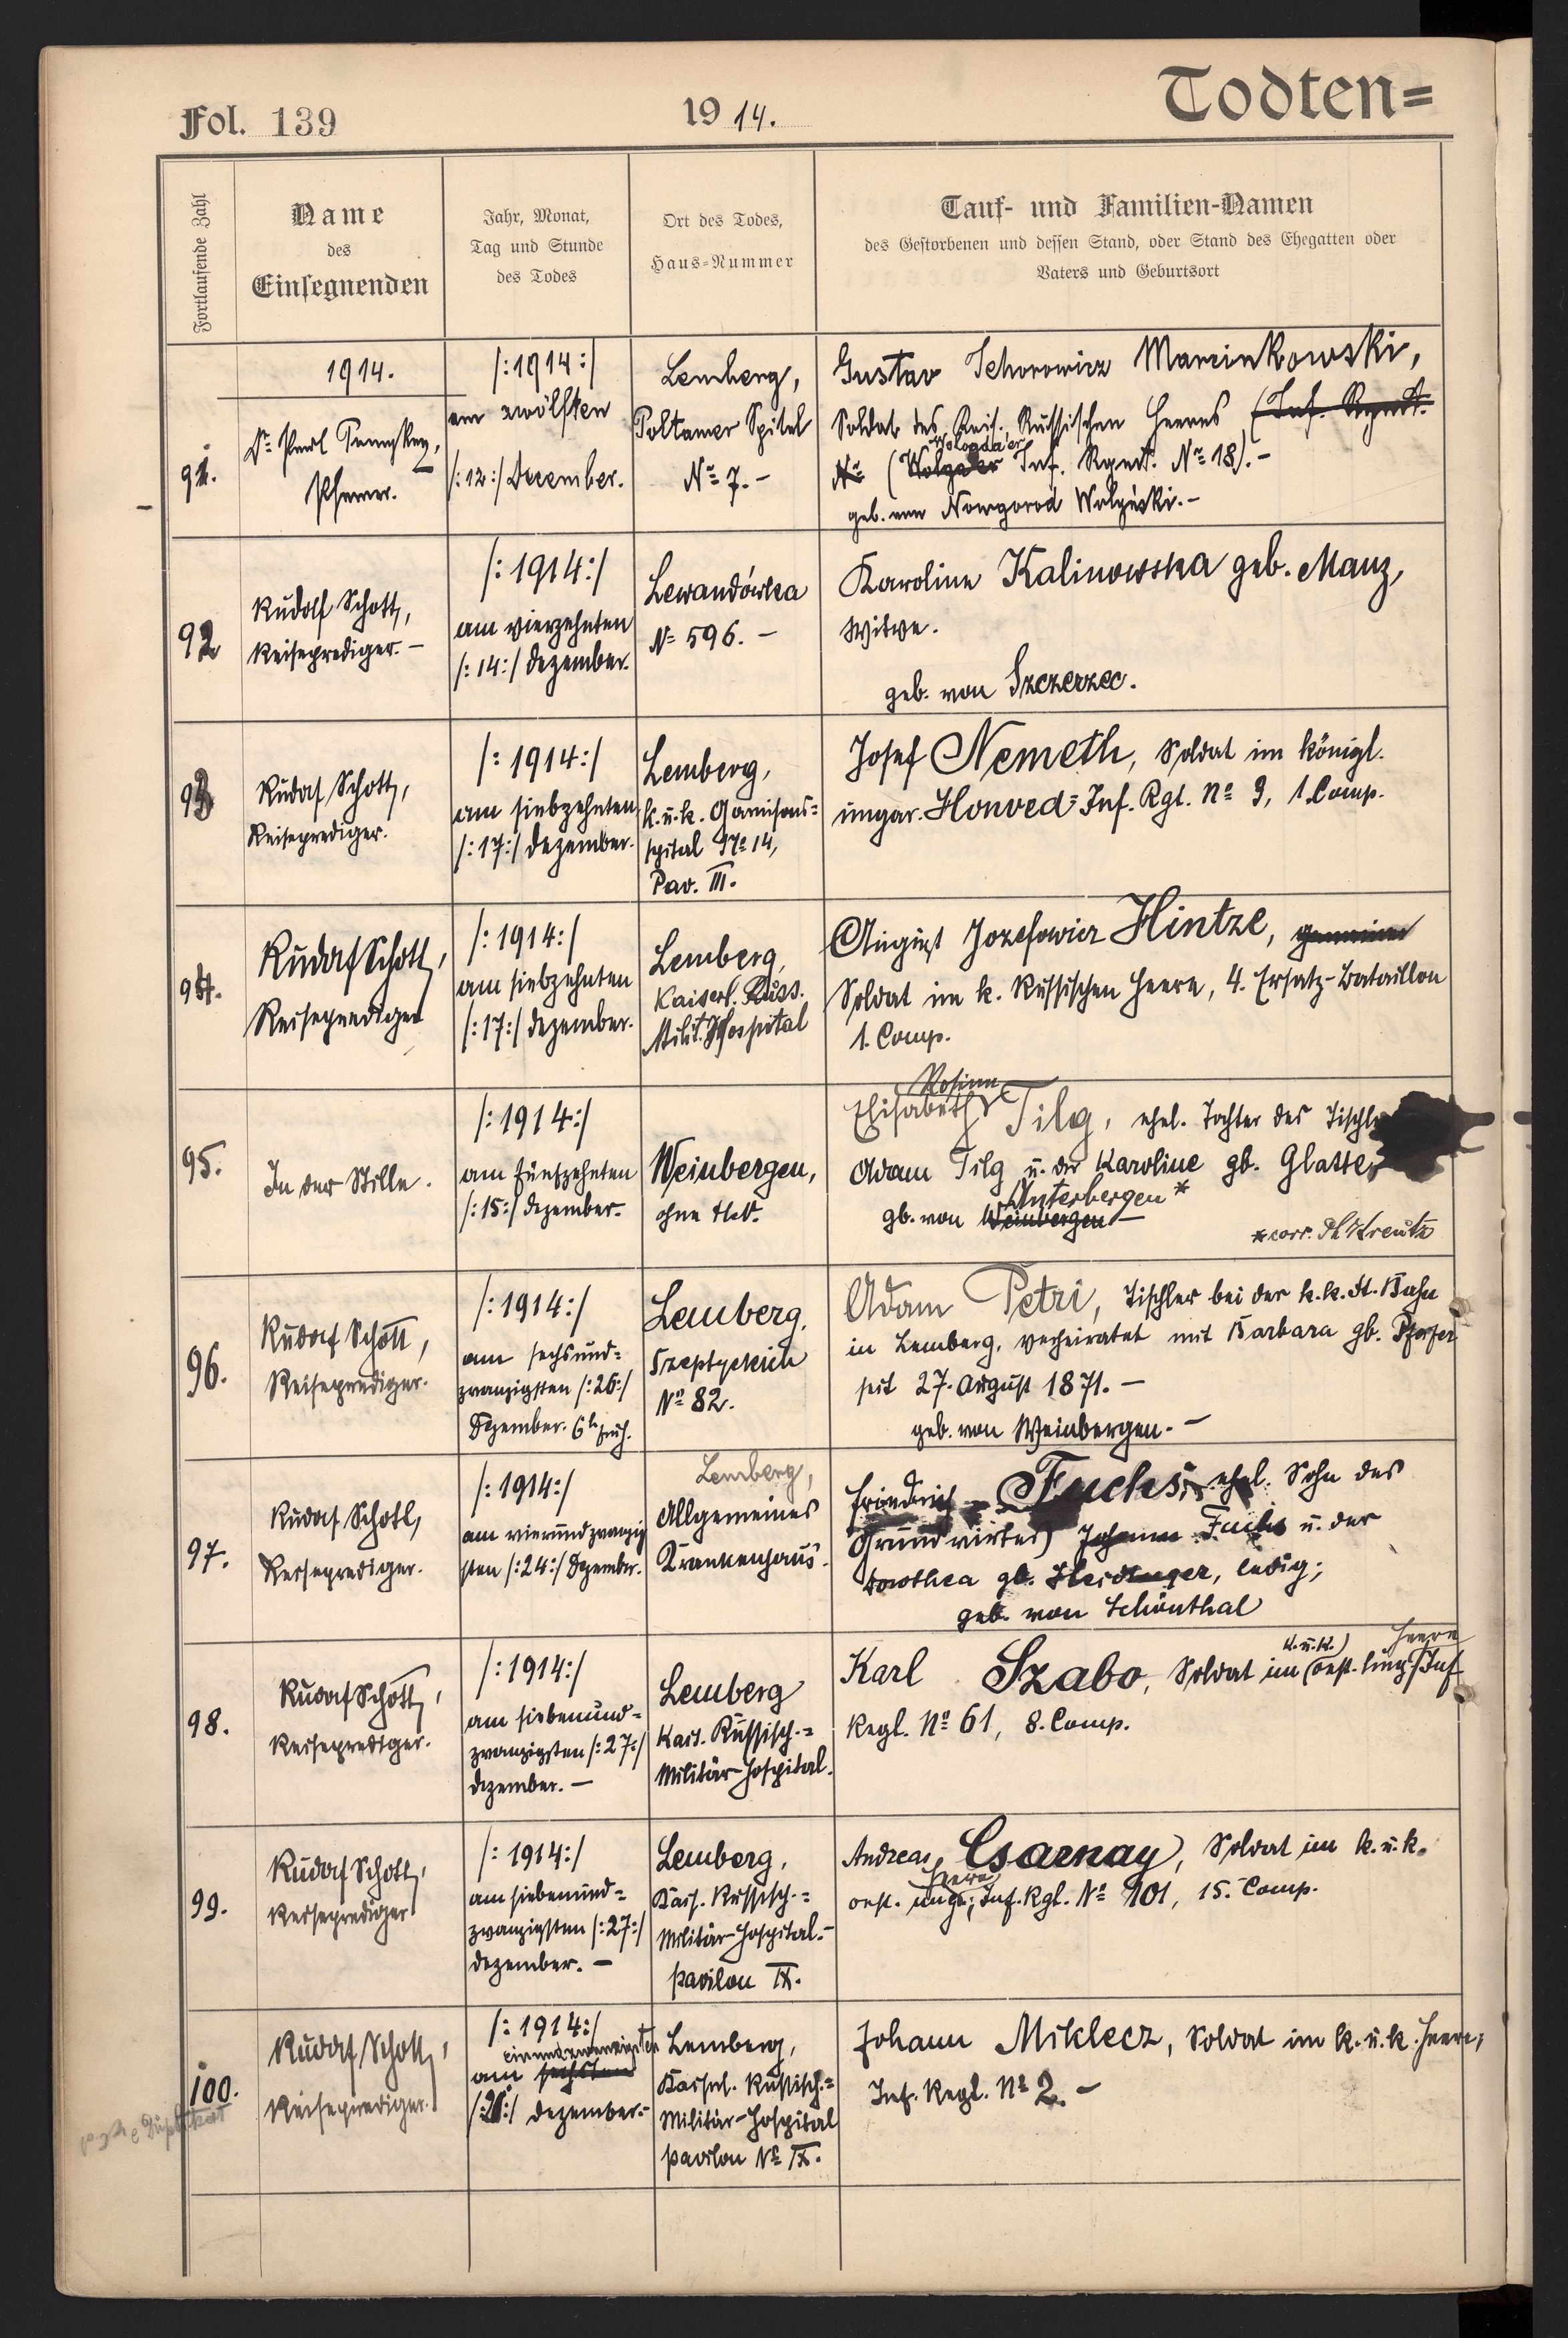 Fol. 139
1914.
Todten=
Fortlaufende Zahl
Name
des
Einsegnenden
Jahr, Monat,
Tag und Stunde
des Todes
Ort des Todes,
Haus-Nummer
Tauf- und Familien-Namen
des Gestorbenen und dessen Stand, oder Stand des Ehegatten oder
Vaters und Geburtsort
91.
1914.
Dr. Paul
Pfarrer.
/:1914:/
am zwölften
/:12:/ December.
Lemberg,
Poltawer Spital
No 7.-
Gustav Marcinkowski,
Soldat des Kais. Russischen Heeres (Inf. Rgmt.
No (Wologda'er Inf. Rgmt. No 18).-
geb. von Nowgorod
92
Rudolf Schott,
Reiseprediger.-
/:1914:/
am vierzehnten
/:14:/ Dezember.
Lewandówka
No 596.-
Karoline Kalinowska geb. Manz,
Witwe.
geb. von Szczerzec.
93
Rudolf Schott,
Reiseprediger.
/:1914:/
am siebzehnten
/:17:/ Dezember.
Lemberg,
k.u.k. Garnisons=
spital No 14,
Pav. III.
Josef Nemeth, Soldat im königl.
ungar. Honved=Inf. Rgt. No 9, 1.Comp.
94.
Rudolf Schott,
Reiseprediger
/:1914:/
am siebzehnten
/:17:/ Dezember.
Lemberg,
Kaiserl. Russ.
Milit. Hospital
August Jozefowicz Hintze, gemeiner
Soldat im k. Russischen Heere, 4. Ersatz-Bataillon
1. Comp.
95.
In der Stille.
/:1914:/
am fünfzehnten
/:15:/ Dezember.
Weinbergen,
ohne No.
Rosina
Elisabeth Tilg, ehel. Tochter des
Adam Tilg u. der Karoline gb. Glatter
Unterbergen *
gb. von Weinbergen -
* corr. Kreutz
96.
Rudolf Schott,
Reiseprediger.
/:1914:/
am sechsund=
zwanzigsten /:26:/
Dezember. 6h früh.
Lemberg,
Szeptyckich
No 82.
Adam Petri, Tischler bei der k.k. St. Bahn
in Lemberg, verheiratet mit Barbara gb.
seit 27. August 1871.-
geb. von Weinbergen.-
97.
Rudolf Schott,
Reiseprediger.
/:1914:/
am vierundzwanzig
sten /:24:/ Dezember.
Lemberg,
Allgemeines
Krankenhaus.
Friedrich Fuchs, ehel. Sohn des
Grundwirtes Johann Fuchs u. der
Dorothea gb. ledig;
geb. von Schönthal
98.
Rudolf Schott,
Reiseprediger.
/:1914:/
am siebenund=
zwanzigsten /:27:/
Dezember.-
Lemberg
Kais. Russisch.=
Militär-Hospital.
k.u.k. Heere
Karl Szabo, Soldat im (oest. ung.) Inf
Regl. No 61, 8. Comp.
99.
Rudolf Schott,
Reiseprediger
/:1914:/
am siebenund=
zwanzigsten /:27:/
Dezember.-
Lemberg,
Kais. Russisch.=
Militär-Hospital.-
Pavilon IX.
Andreas Csarnay, Soldat im k.u.k.
Heere
oest. ung., Inf. Rgl. No 101, 15. Comp.
100.
Rudolf Schott,
Reiseprediger.
/:1914:/
einundzwanzigsten
am sechsten
/:21:/ Dezember.-
Lemberg,
Kaiserl. Russisch.=
Militär-Hospital
Pavilon No IX.
Johann Miklecz, Soldat im k.u.k. Heere,
Inf. Regl. No 2.-